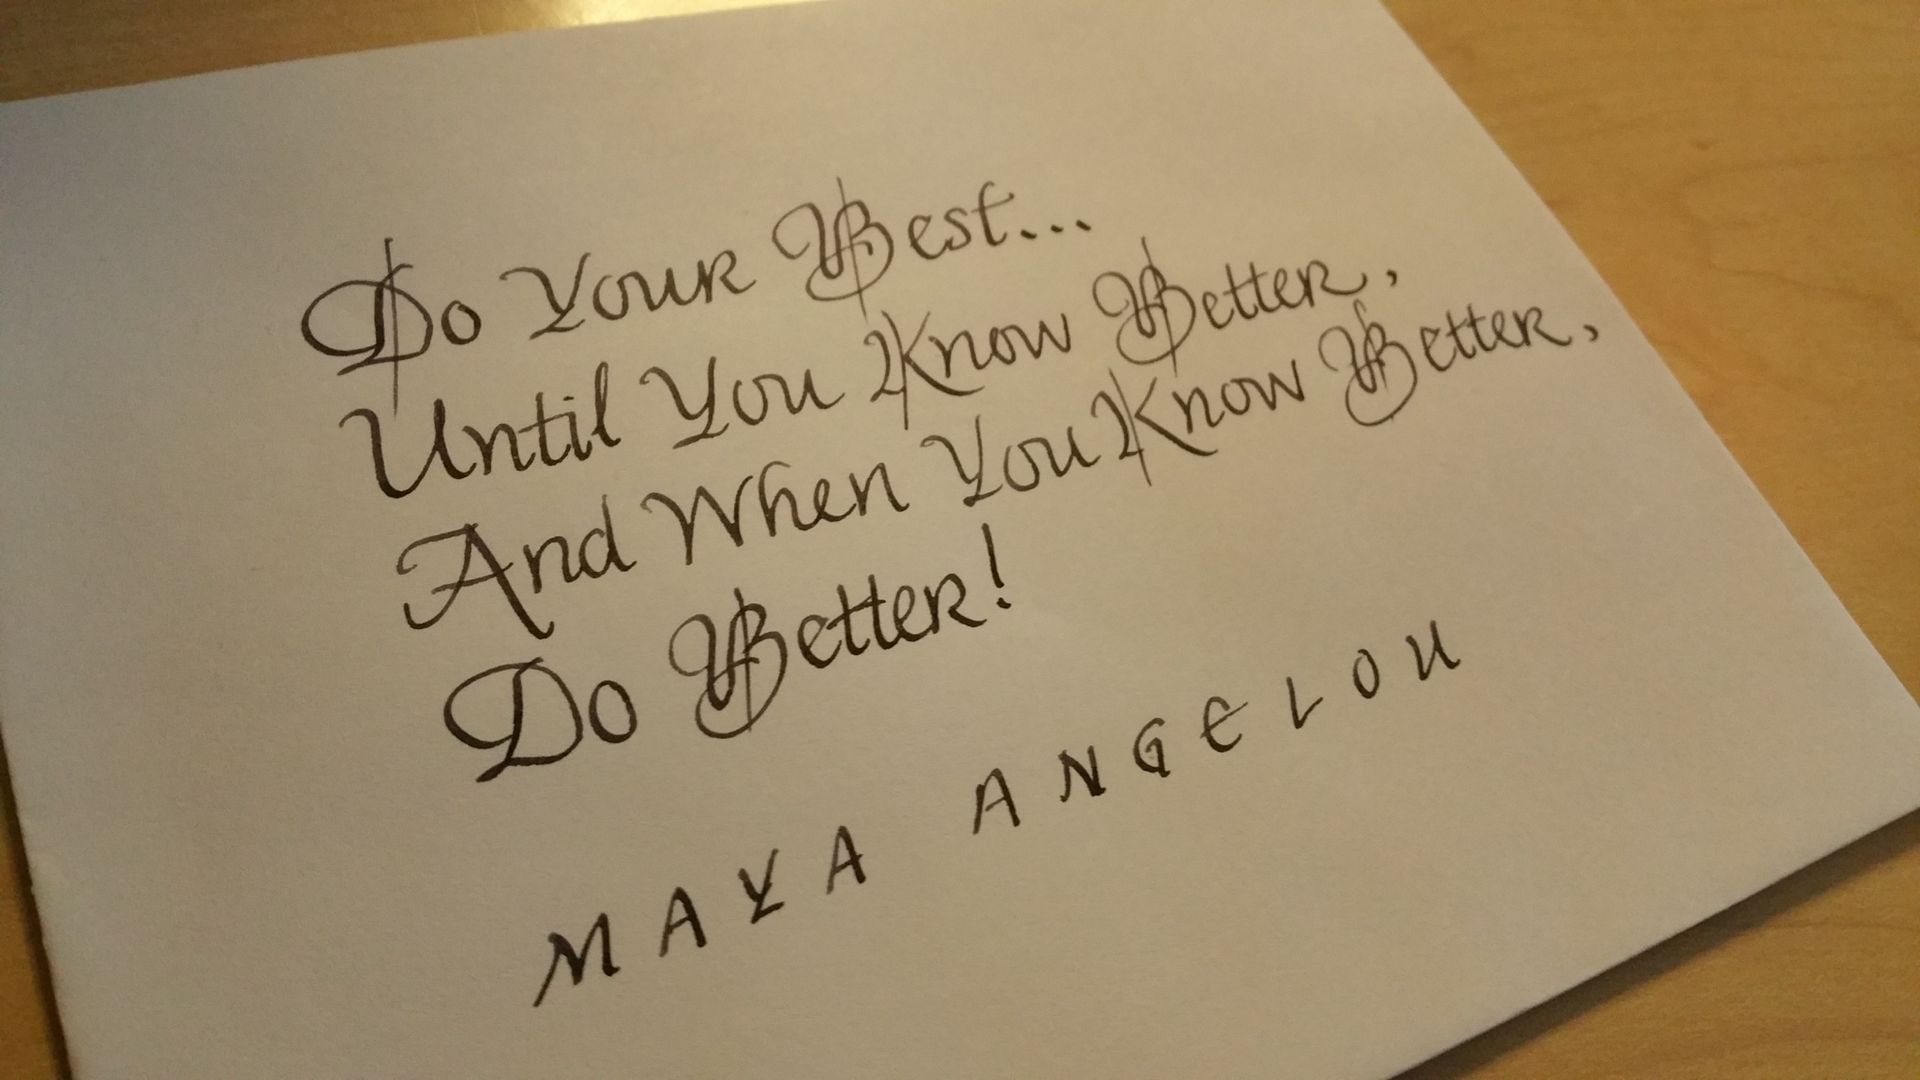 Do Your Best...
Until You Know Better,
And When You Know Better,
Do Better!
MAYA ANGELOU